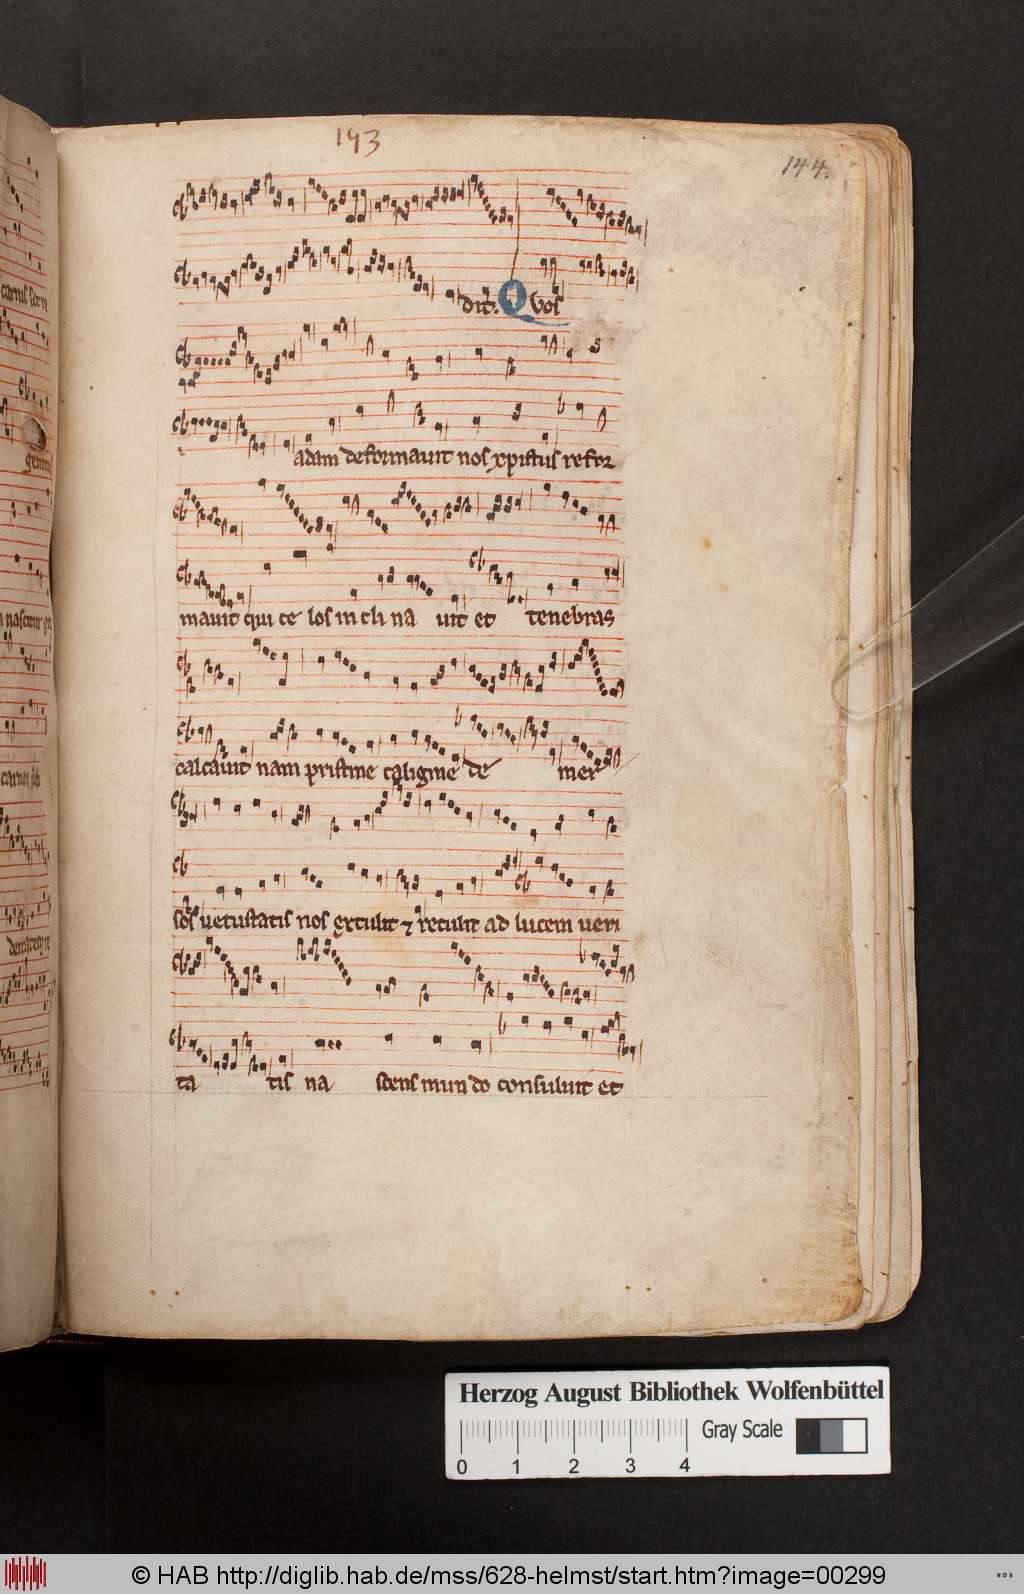 193
144.
dit. Quos
adam deformauit nos xpistus refor
mauit qui ce los in cli na uit et tenebras
calcauit nam pristine caligine de mer
sos uetustatis nos extulit ⁊ retulit ad lucem ueri
ta tis na scens mun do consuluit et
Herzog August Bibliothek Wolfenbüttel
Gray Scale
0 1 2 3 4
© HAB http://diglib.hab.de/mss/628-helmst/start.htm?image=00299